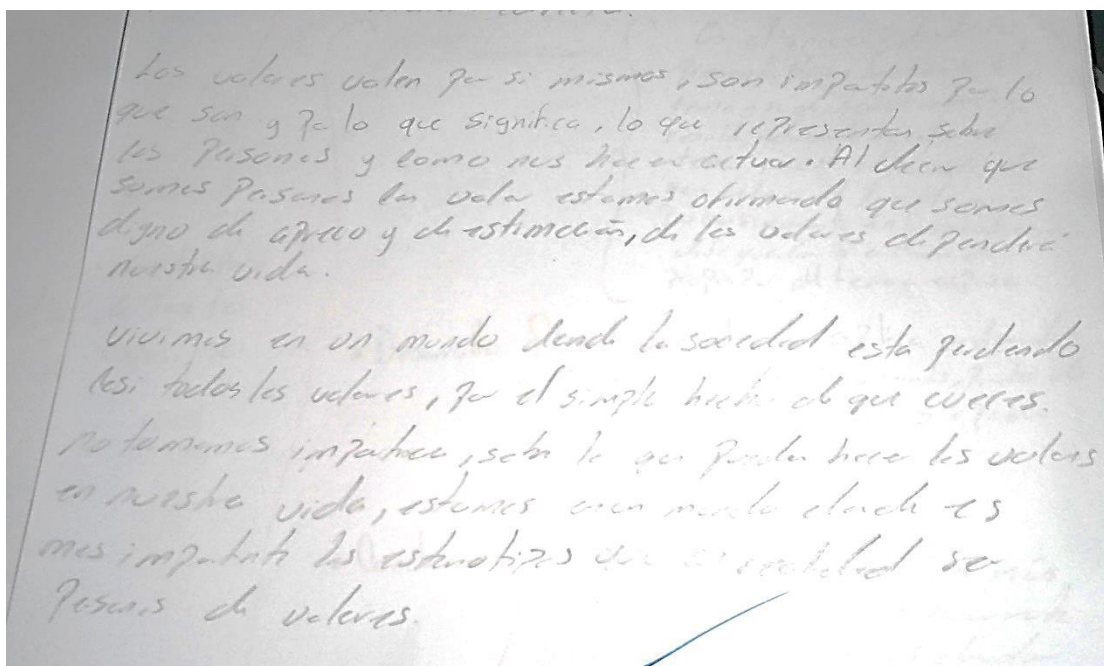 Los valores valen por si mismos, son importates por lo
que son y por lo que significa, lo que representan sobre
las Personas y como nos hacen actuar. Al decir que
somos Personas con valor estamos afirmando que somos
digno de aprecio y de estimación, de los valores dependerá
nuestra vida.
vivimos en un mundo donde la sociedad esta perdiendo
casi todos los valores, por el simple hecho de que aveces.
no tomamos importacia, sobre lo que pueden hacer los valores
en nuestra vida, estamos en un mundo donde es
mas importante los estereotipos que en realidad ser
Personas de valores.